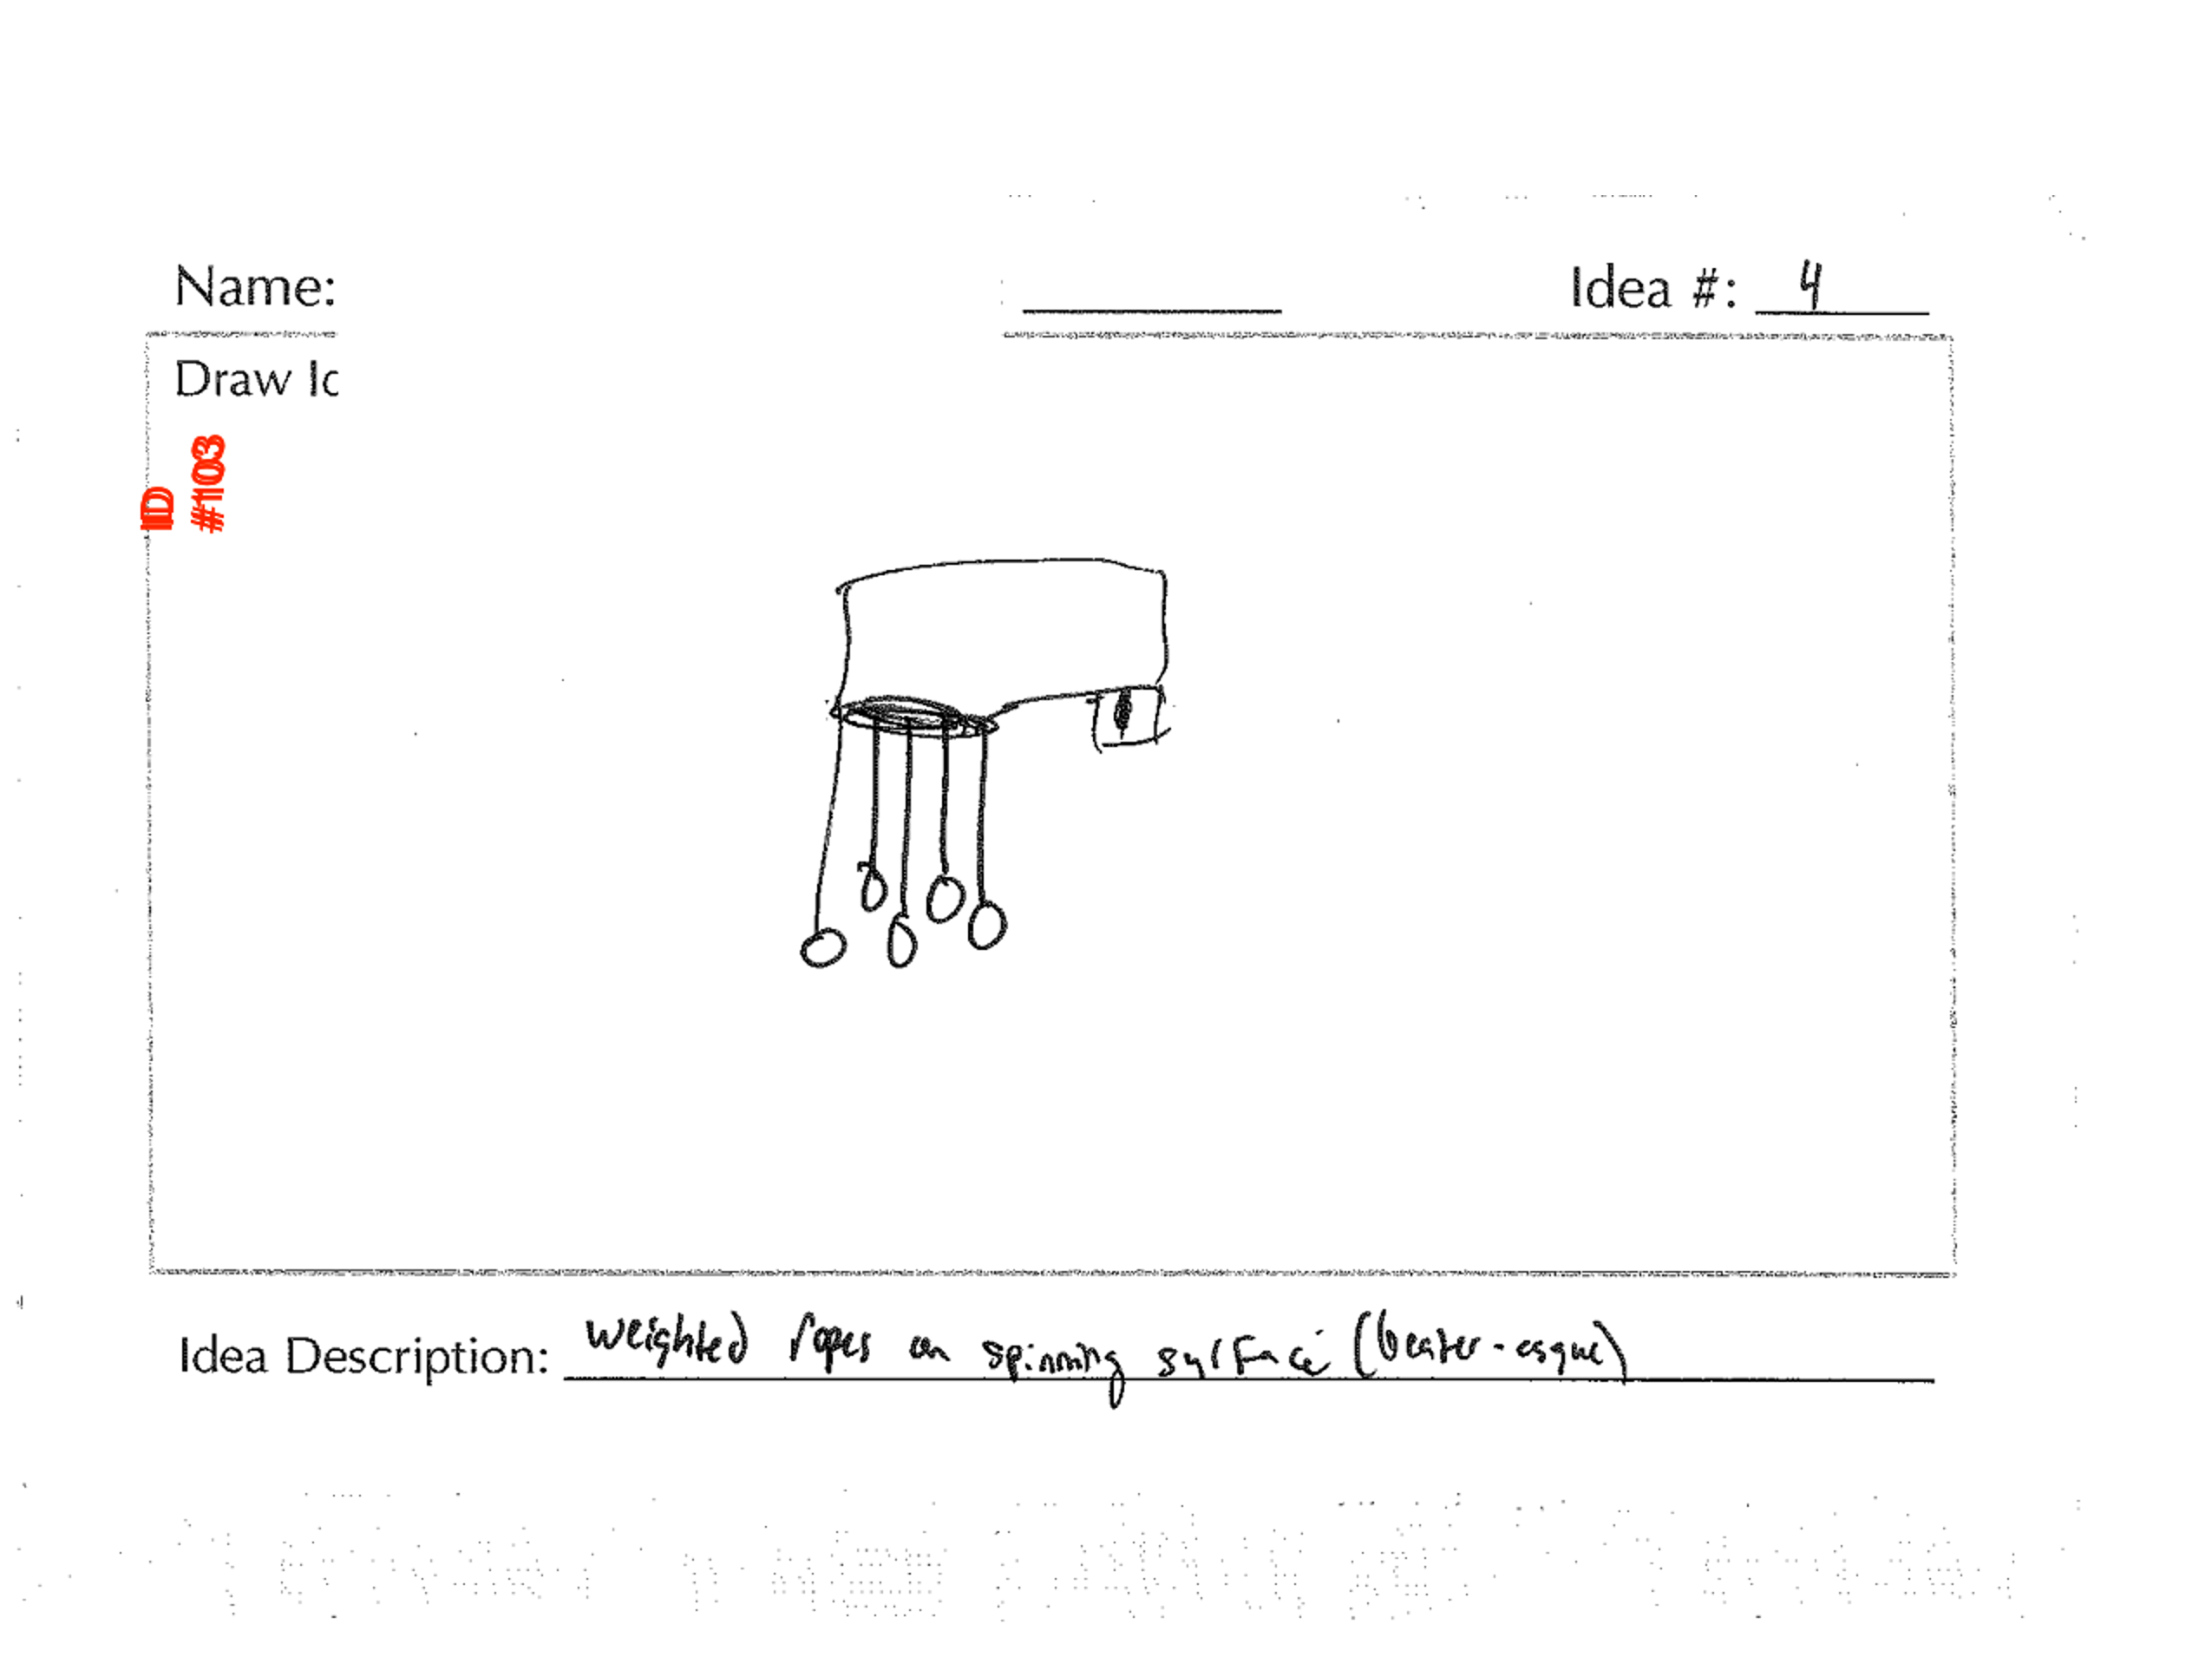 Name:
Idea #: 4
Draw Id
ID
#1103
Idea Description: weighted ropes on spinning surface (beater-esque)